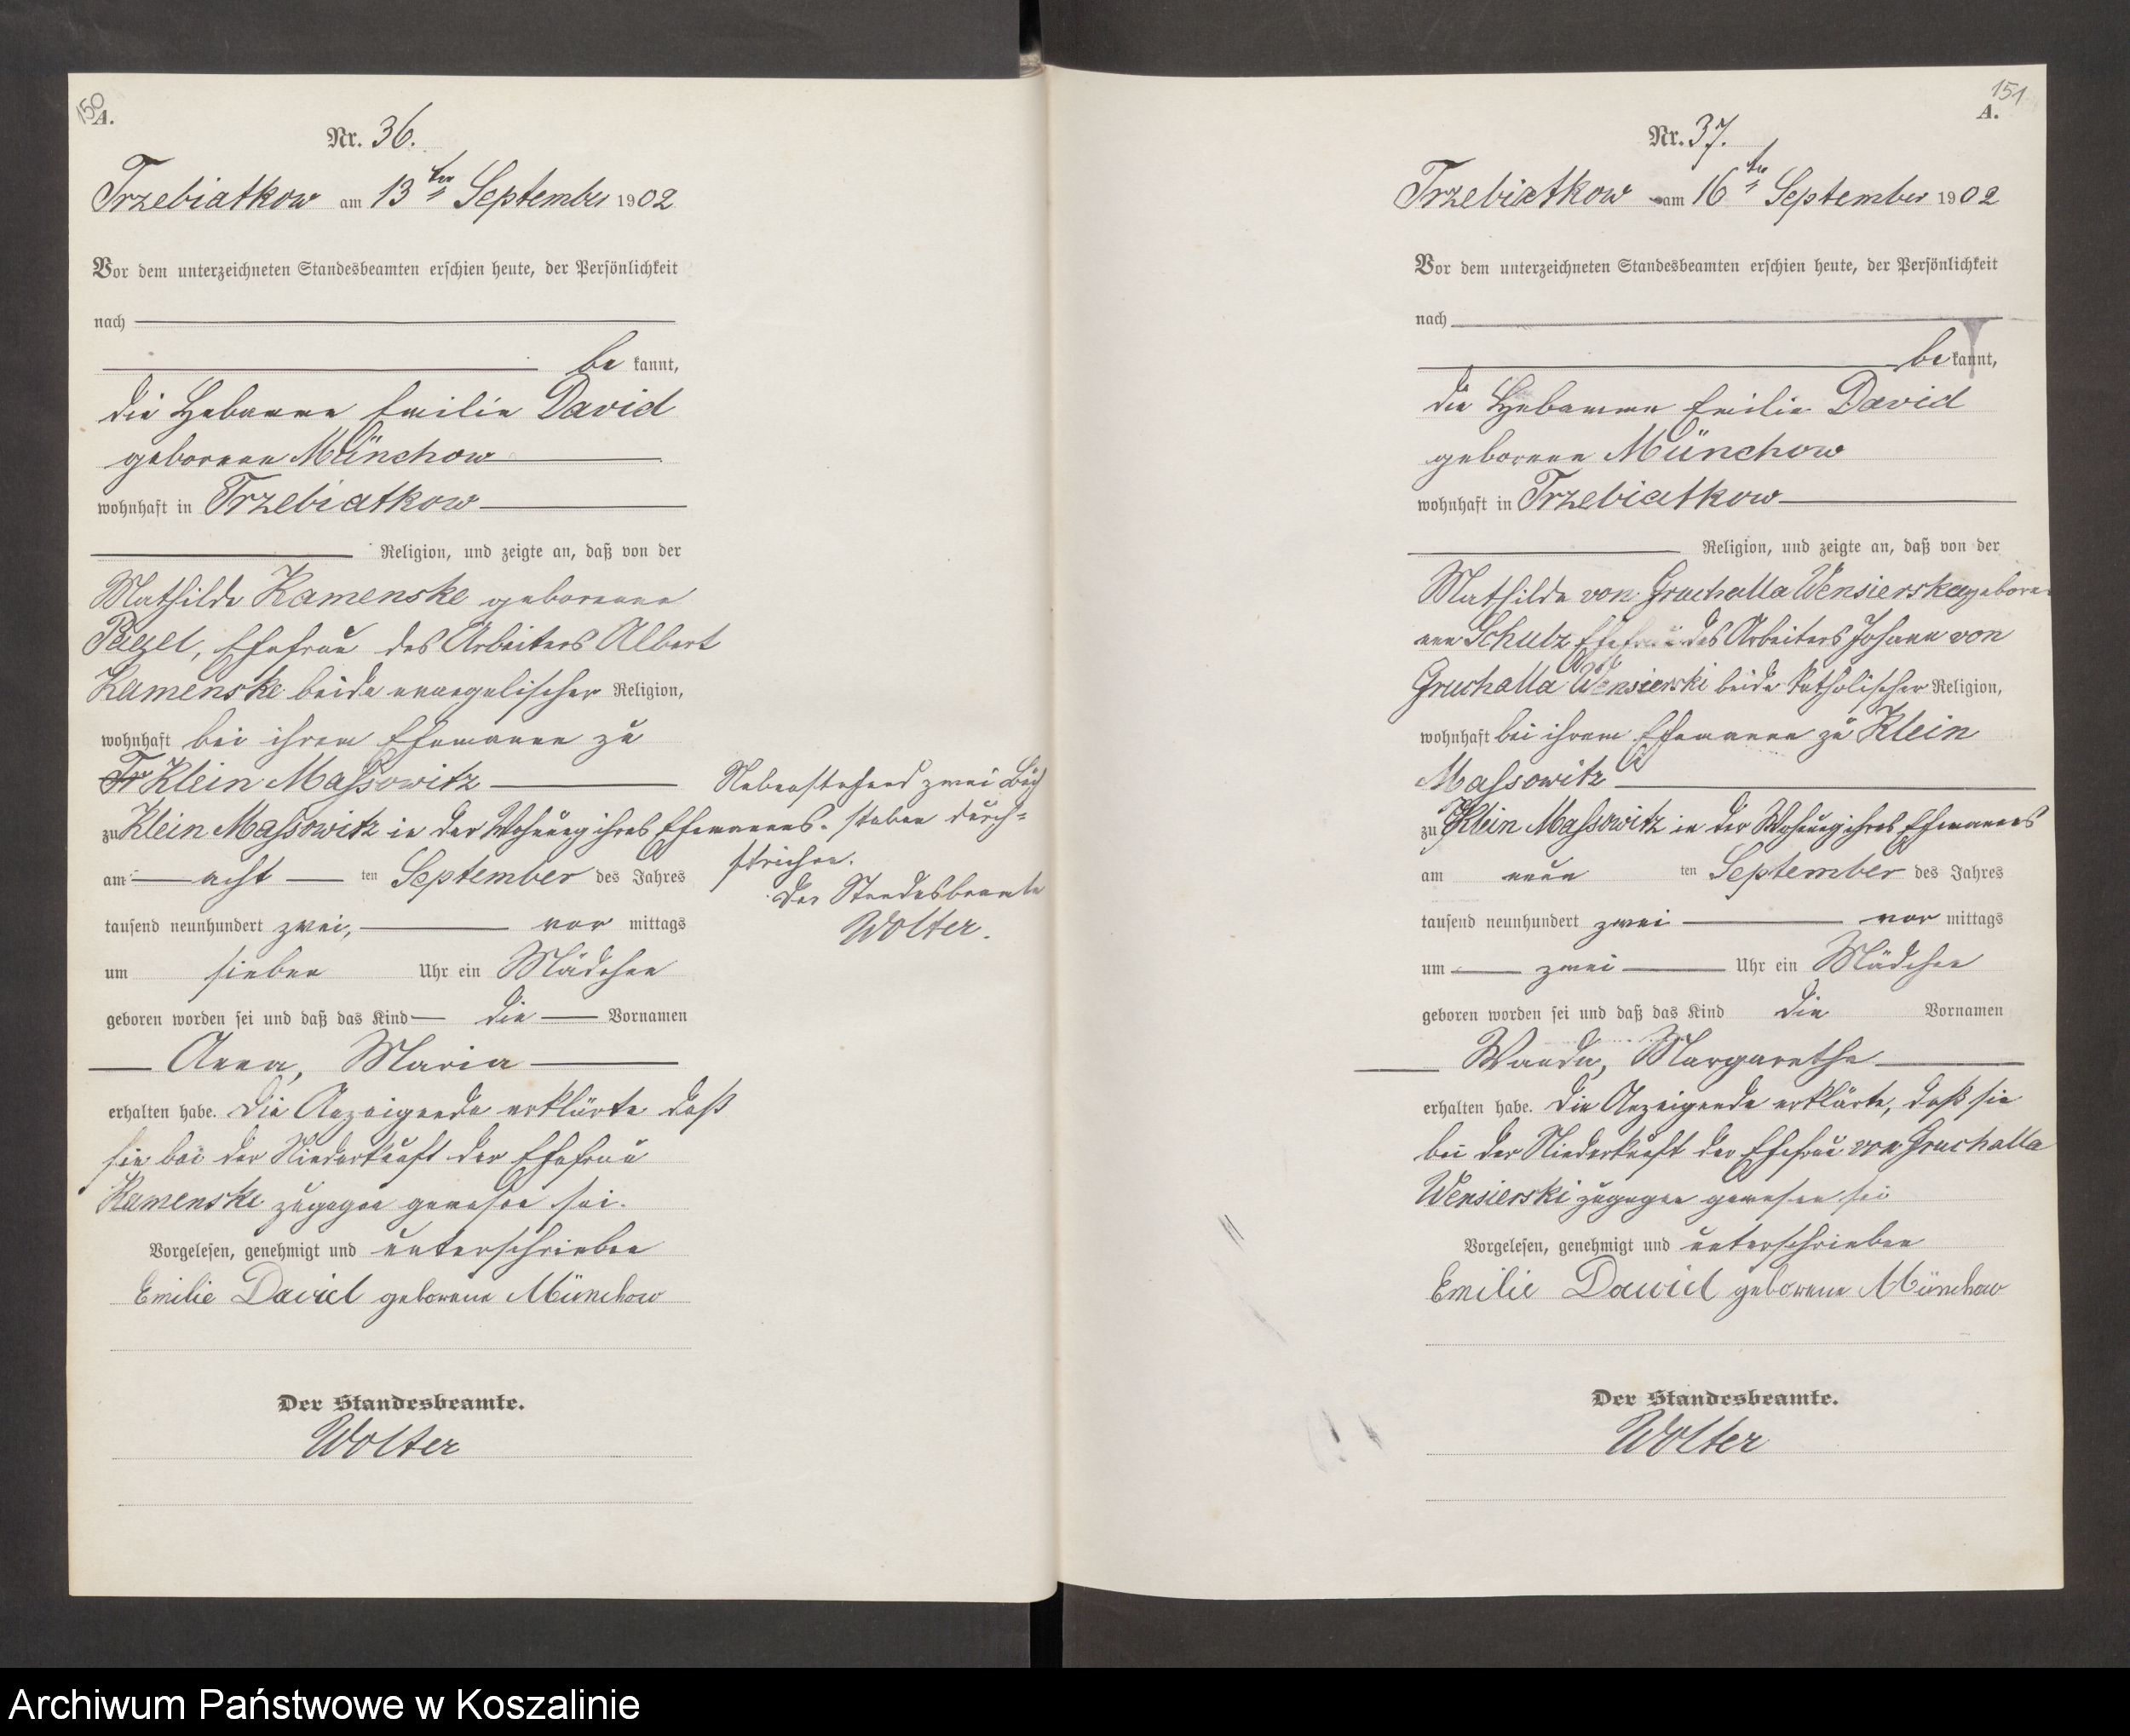 150
A.
Nr. 36.
Trzebiatkow am 13ten September 1902
Vor dem unterzeichneten Standesbeamten erschien heute, der Persönlichkeit
nach
be kannt,
die Hebamme Emilie David
geborene Münchow
wohnhaft in Trzebiatkow
Religion, und zeigte an, daß von der
Mathilde Kamenske geborenen
Pagel, Ehefrau des Arbeiters Albert
Kamenske beide evangelischer Religion,
wohnhaft bei ihrem Ehemanne zu
Tr Klein Massowitz
zu Klein Massowitz in der Wohnung ihres Ehemannes
am acht ten September des Jahres
tausend neunhundert zwei, vor mittags
um sieben Uhr ein Mädchen
geboren worden sei und daß das Kind die Vornamen
Anna, Maria
erhalten habe. Die Anzeigende erklärte daß
sie bei der Niederkunft der Ehefrau
Kamenske zugegen gewesen sei.
Vorgelesen, genehmigt und unterschrieben
Emilie David geborene Münchow
Der Standesbeamte.
Wolter
Nebenstehend zwei Buch
staben durch=
strichen.
Der Standesbeamte
Wolter.
151
A.
Nr. 37.
Trzebiatkow am 16ten September 1902
Vor dem unterzeichneten Standesbeamten erschien heute, der Persönlichkeit
nach
be kannt,
die Hebamme Emilie David
geborene Münchow
wohnhaft in Trzebiatkow
Religion, und zeigte an, daß von der
Mathilde von Gruchalla Wensierska gebore-
nen Schulz Ehefrau des Arbeiters Johann von
Gruchalla Wensierski beide katholischer Religion,
wohnhaft bei ihrem Ehemanne zu Klein
Massowitz
zu Klein Massowitz in der Wohnung ihres Ehemannes
am neun ten September des Jahres
tausend neunhundert zwei vor mittags
um zwei Uhr ein Mädchen
geboren worden sei und daß das Kind die Vornamen
Wanda, Margarethe
erhalten habe. Die Anzeigende erklärte, daß sie
bei der Niederkunft der Ehefrau von Gruchalla
Wensierski zugegen gewesen sei
Vorgelesen, genehmigt und unterschrieben
Emilie David geborene Münchow
Der Standesbeamte.
Wolter
Archiwum Państwowe w Koszalinie